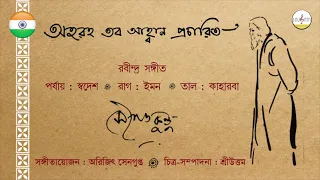 অহরহ তব আহ্বান প্রচারিত
রবীন্দ্র সঙ্গীত
পর্যায় : স্বদেশ ❁ রাগ : ইমন ❁ তাল : কাহারবা
সঙ্গীতায়োজন : অরিজিৎ সেনগুপ্ত ❁ চিত্র-সম্পাদনা : শ্রীউত্তম